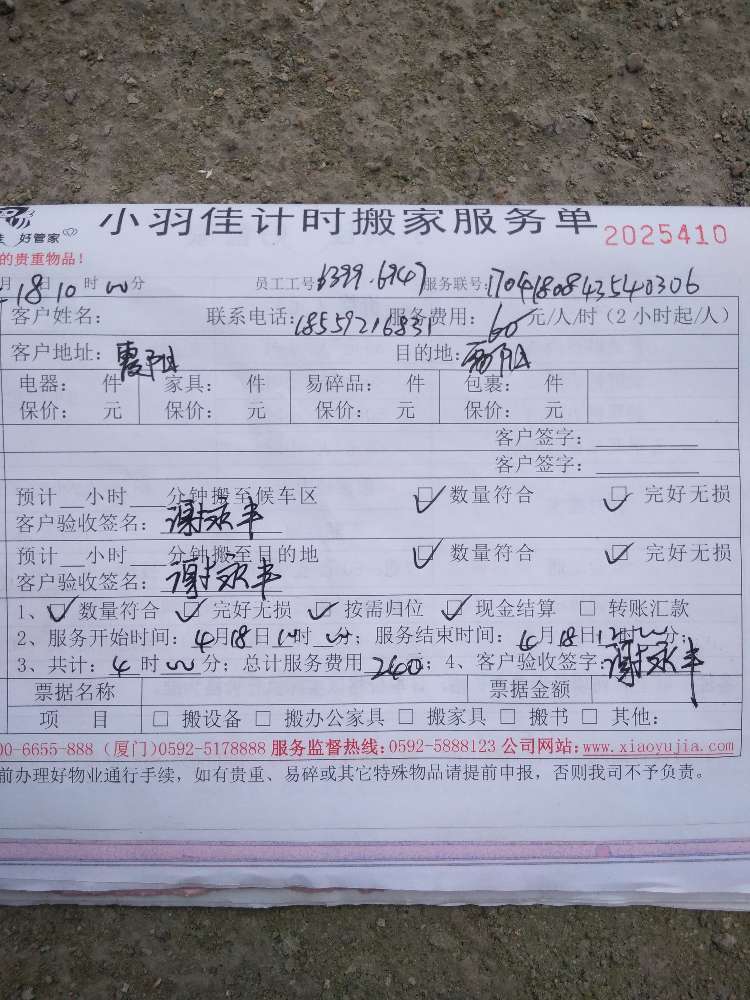 好管家 小羽佳计时搬家服务单 2025410
的贵重物品!
月18日10时00分 员工工号:1399.6947 服务联号:1704180843540306
客户姓名: 联系电话:18559216831 服务费用:60元/人/时(2小时起/人)
客户地址:霞阳 目的地:
电器: 件 家具: 件 易碎品: 件 包裹: 件
保价: 元 保价: 元 保价: 元 保价: 元
客户签字:
客户签字:
预计__小时__分钟搬至候车区 ☑数量符合 ☑完好无损
客户验收签名:谢永丰
预计__小时__分钟搬至目的地 ☑数量符合 ☑完好无损
客户验收签名:谢永丰
1、☑数量符合 ☑完好无损 ☑按需归位 ☑现金结算 □转账汇款
2、服务开始时间:4月18日10时00分;服务结束时间:4月18日12时00分;
3、共计:4时00分;总计服务费用2400元;4、客户验收签字:谢永丰
票据名称 票据金额
项 目 □搬设备 □搬办公家具 □搬家具 □搬书 □其他:
00-6655-888 (厦门)0592-5178888 服务监督热线:0592-5888123 公司网站:www.xiaoyujia.com
前办理好物业通行手续,如有贵重、易碎或其它特殊物品请提前申报,否则我司不予负责。